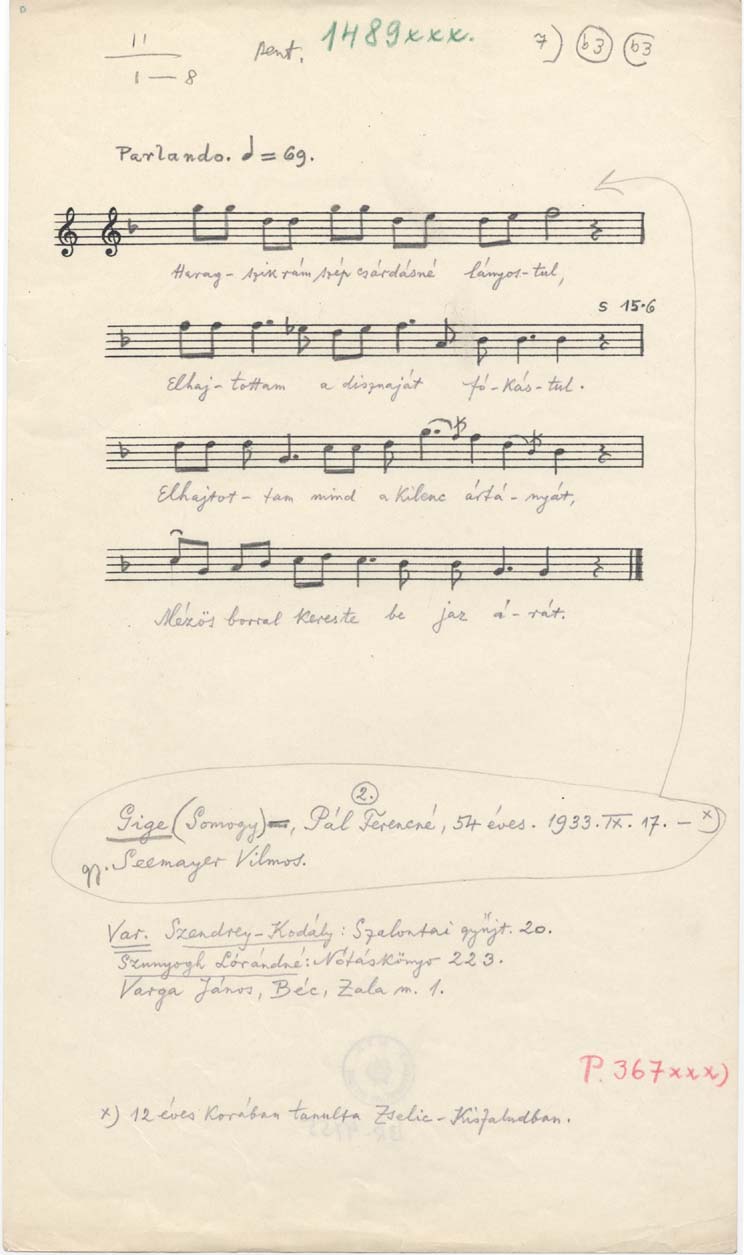 11
1—8
pent.
1489xxx.
7) b3 b3
Parlando. = 69.
Harag- szik rám szép csárdásné lányos-tul,
s 15·6
Elhaj- tottam a disznaját fó-kás-tul.
Elhajtot- tam mind a kilenc ártá- nyát,
Mézös borral kereste be jaz á-rát.
2.
Gige (Somogy), Pál Ferencné, 54 éves. 1933. IX. 17. – x)
gy. Seemayer Vilmos.
Var. Szendrey-Kodály: Szalontai gyűjt. 20.
Szunyogh Lórándné: Nótáskönyv 223.
Varga János, Béc, Zala m. 1.
P. 367xxx)
x) 12 éves korában tanulta Zselic-Kisfaludban.